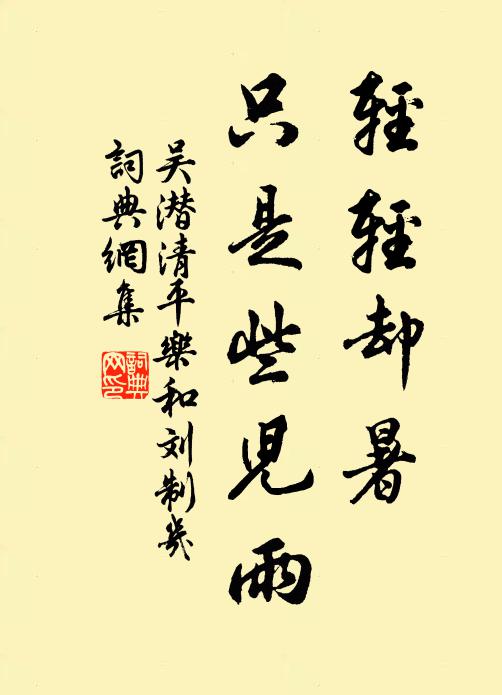 輕輕却暑
只是些児雨
吴潜清平樂和刘制幾
詞典網集
詞典網印